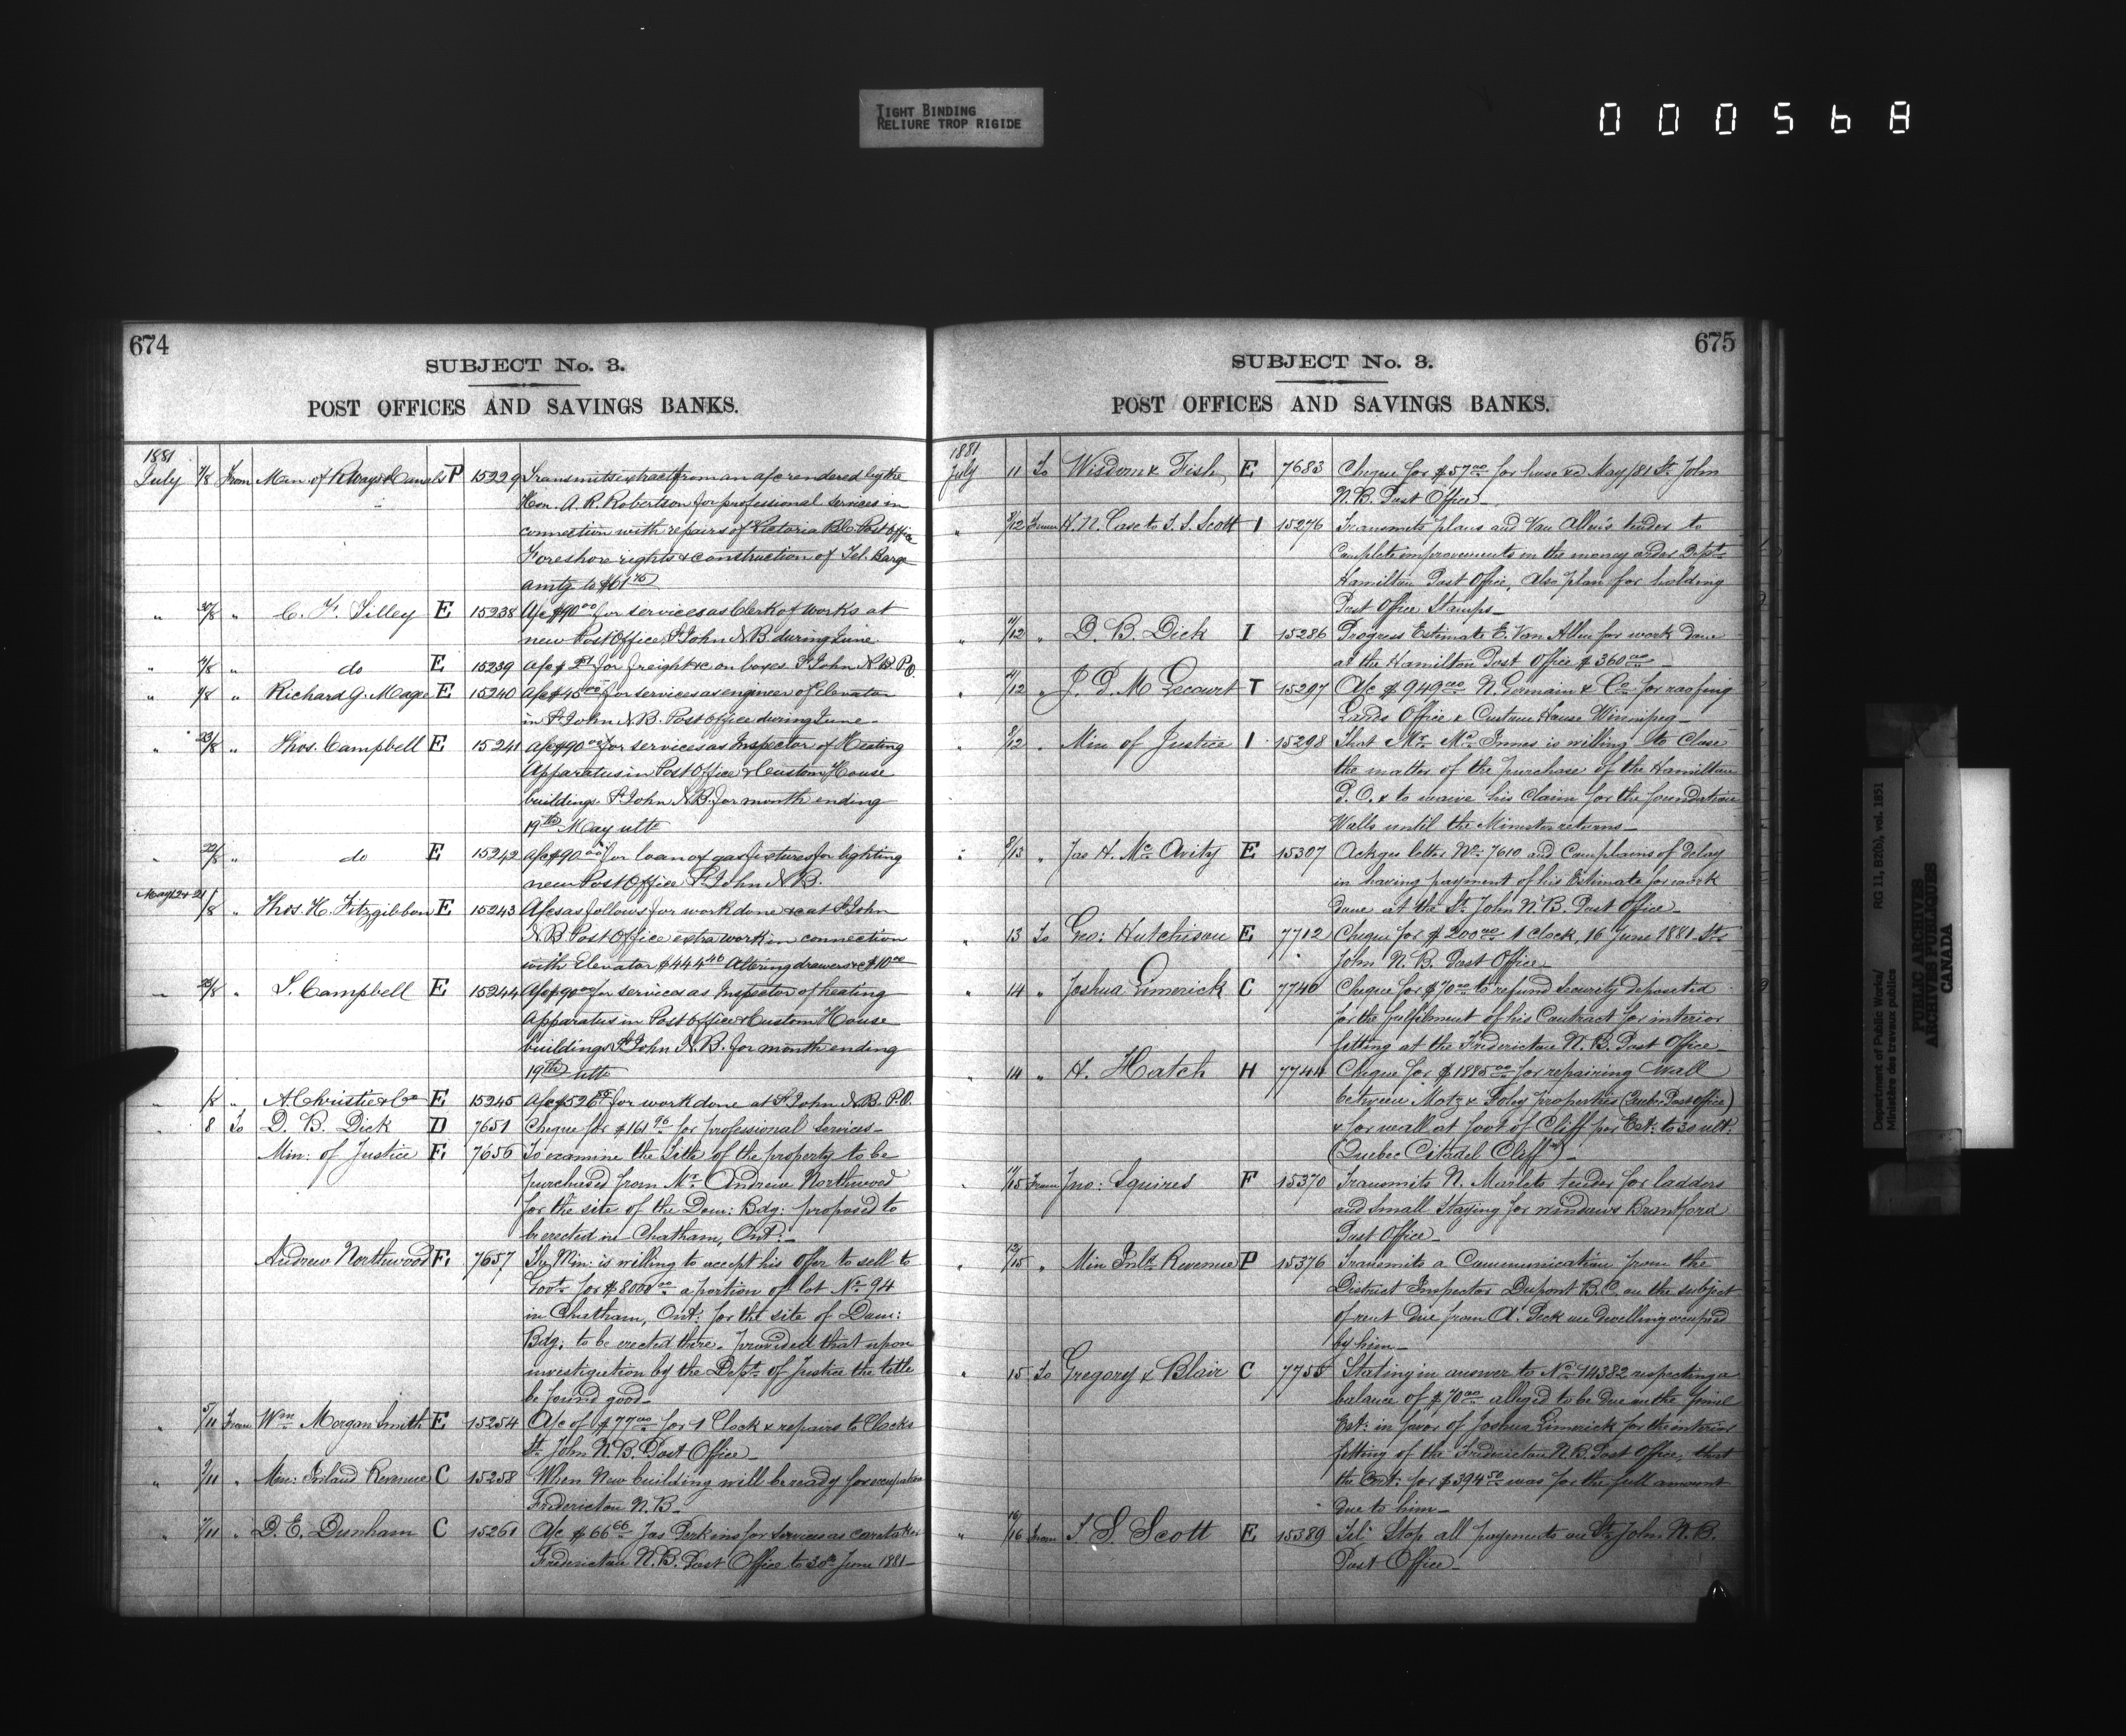 TIGHT BINDING
RELIURE TROP RIGIDE
000568
674
SUBJECT No. 3.
POST OFFICES AND SAVINGS BANKS.
1881
July 7/8 From Man of Rlways & Canals P 15229 Transmits extract from an a/c rendered by the
Hon. A. R. Robertson for professional services in
connection with repairs of Victoria B.C. Post Office
Foreshore rights & construction of Tel. Barge
amtg to $61
" 30/8 " C. F. Tilley E 15238 A/c $90 00 for services as Clerk of works at
new Post Office St John N.B during June
" " do E 15239 A/c $ for freight &c on boxes St John N.B. P.O.
" /8 " Richard G. Magee E 15240 A/c $45 00 for services as engineer of elevator
in St John N.B. Post Office during June
" 23/8 " Thos. Campbell E 15241 A/c $90 00 for services as Inspector of Heating
Apparatus in Post Office & Custom House
buildings. St John N.B. for month ending
19th May ulto
" 22/8 " do E 15242 A/c $90 00 for loan of gas fixtures for lighting
new Post Office St John N.B.
May 12 & 21/8 " Thos. H. Fitzgibbon E 15243 A/cs as follows for work done &c at St John
N.B Post Office extra work in connection
with Elevator $444 46 Altering drawers &c $10 00
" /8 " T. Campbell E 15244 A/c $90 00 for services as Inspector of heating
Apparatus in Post Office & Custom House
buildings St John N.B. for month ending
19th ulto
" /8 " A. Christie & Co E 15245 A/c $526 for work done at St John N.B. P.O.
" 8 To D. B. Dick D 7651 Cheque for $161 96 for professional services
Min: of Justice E 7656 To examine the title of the property to be
purchased from Mr. Andrew Northwood
for the site of the Dom: Bdg: proposed to
be erected in Chatham, Ont:
Andrew Northwood E 7657 The Min: is willing to accept his offer to sell to
Govt. for $8000 00 a portion of lot No 94
in Chatham, Ont: for the site of Dom:
Bdg: to be erected there. provided that upon
investigation by the Dept. of Justice the title
be found good
" 5/11 From Wm Morgan Smith E 15254 A/c of $77 00 for 1 Clock & repairs to Clocks
St. John N.B. Post Office
" 9/11 " Min: Inland Revenue C 15258 When New building will be ready for occupation
Fredericton N.B.
" 7/11 " D. E. Dunham C 15261 A/c $66 66 Jas Perkins for services as caretaker
Fredericton N.B. Post Office to 30th June 1881
675
SUBJECT No. 3.
POST OFFICES AND SAVINGS BANKS.
1881
July 11 To Wisdom & Fish E 7683 Cheque for $57 00 for hose &c May/81 St. John
N.B. Post Office
" 8/12 From H. N. Case to T. S. Scott I 15276 Transmits plans and Van Allen's tender to
Complete improvements in the money order Dept.
Hamilton Post Office, Also plan for holding
Post Office Stamps
" 11/12 " D. B. Dick I 15286 Progress Estimate E. Van Allen for work done
at the Hamilton Post Office $360 00
" /12 " J. P. M Lecourt T 15297 A/c $949 00 N. Germain & Co. for roofing
Lands Office & Custom House Winnipeg
" /12 " Min of Justice I 15298 That Mr. Mc Innes is willing to Close
the matter of the purchase of the Hamilton
P.O. & to waive his Claim for the foundation
Walls until the Minister returns
" 8/13 " Jas H. Mc Avity E 15307 Ackgs letter No: 7610 and Complains of delay
in having payment of his Estimate for work
done at the St. John N.B. Post Office
" 13 To Geo: Hutchison E 7712 Cheque for $200 00 1 clock, 16 June 1881 St.
John N.B. Post Office
" 14 " Joshua Limerick C 7740 Cheque for $70 00 to refund Security deposited
for the fulfilment of his Contract for interior
fitting at the Fredericton N.B. Post Office
" 14 " H. Hatch H 7744 Cheque for $1885 00 for repairing wall
between Motz & Foley properties (Quebec Post office)
& for wall at foot of Cliff per Est: to 30 ult:
(Quebec Citadel Cliff)
" 11/15 From Jno: Squires F 15370 Transmits N. Marlets tender for ladders
and Small Staging for windows Brantford
Post Office
" 12/15 " Min Inld Revenue P 15376 Transmits a Communication from the
District Inspector Dupont B.C. on the subject
of rent due from A. Peck on dwelling occupied
by him
" 15 To Gregory & Blair C 7755 Stating in answer to No 14382 respecting a
balance of $70 00 alleged to be due on the final
Est: in favor of Joshua Limerick for the interior
fitting of the Fredericton N.B. Post Office, that
the Cert: for $394 50 was for the full amount
due to him
" 16/16 From T S. Scott E 15389 Tel: Stop all payments on St. John N.B.
Post Office
Department of Public Works/ RG 11, B2(b), vol. 1851
Ministère des travaux publics
PUBLIC ARCHIVES
ARCHIVES PUBLIQUES
CANADA